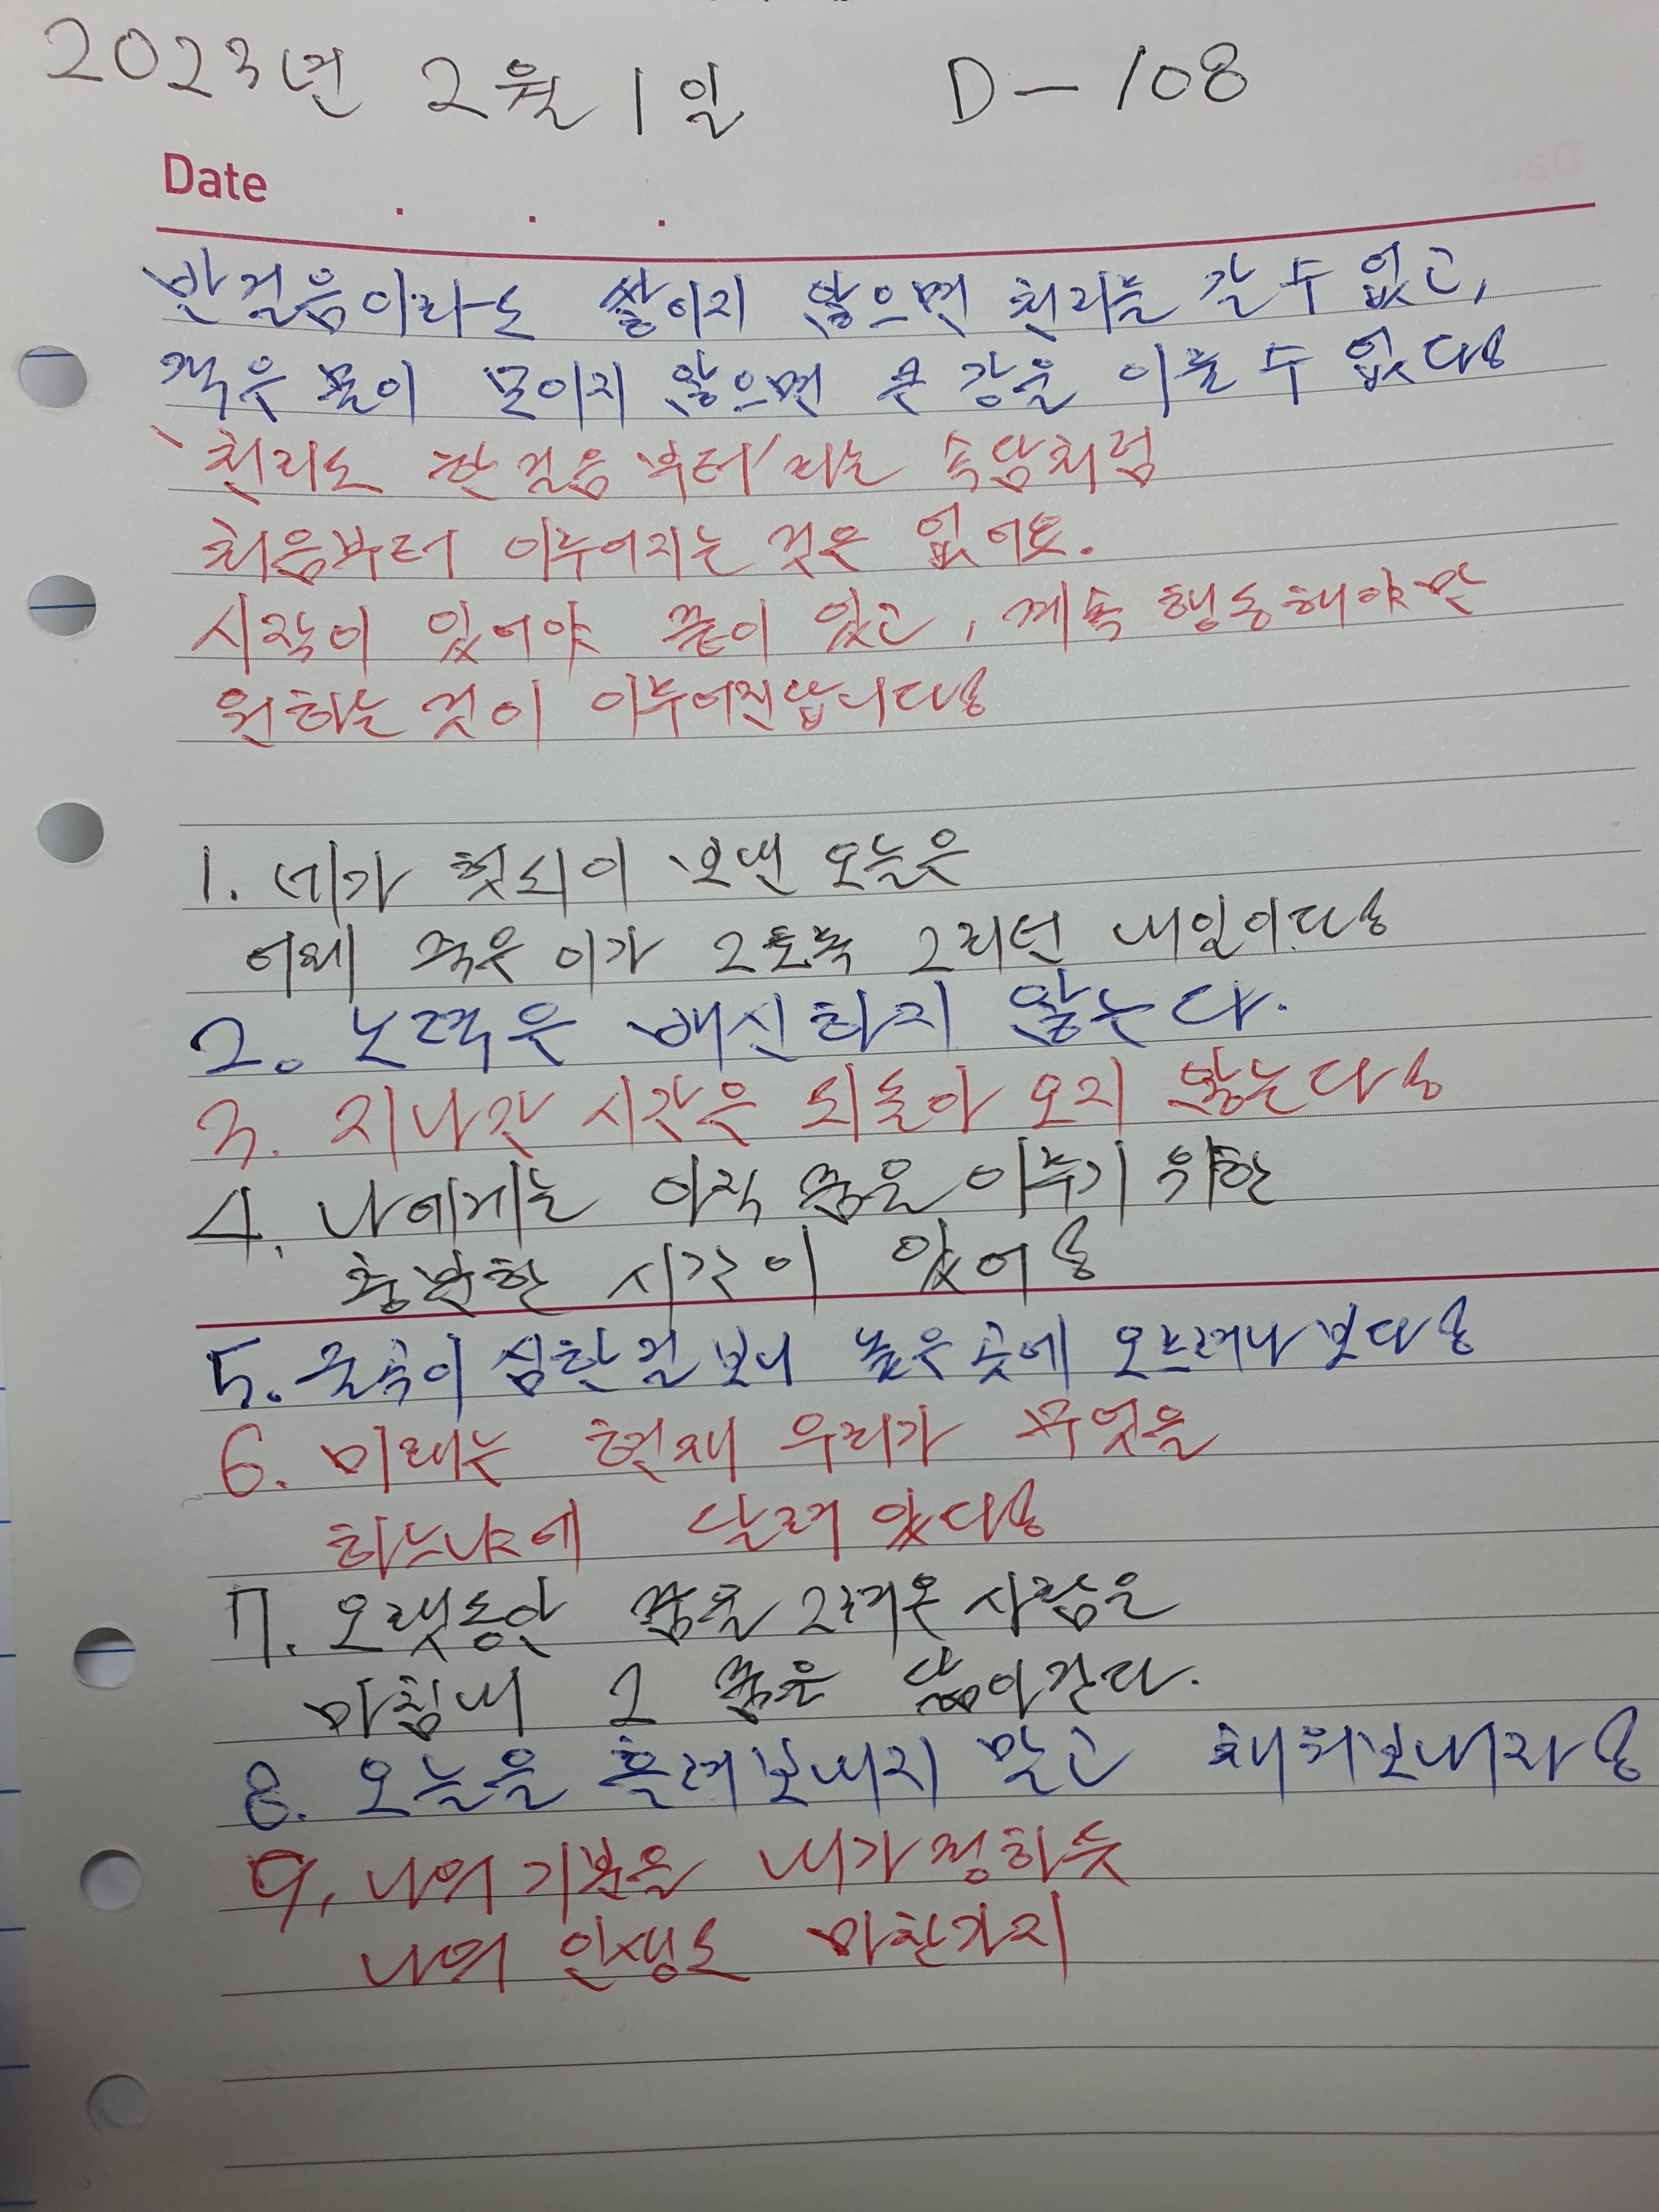 2023년 2월 1일 D-108
Date . . .
반걸음이라도 쌓이지 않으면 천리를 갈 수 없고,
작은 물이 모이지 않으면 큰 강을 이룰 수 없다.
'천리도 한 걸음부터'라는 속담처럼
처음부터 이루어지는 것은 없어요.
시작이 있어야 끝이 있고, 계속 행동해야만
원하는 것이 이루어진답니다.
1. 네가 헛되이 보낸 오늘은
어제 죽은 이가 그토록 그리던 내일이다.
2. 노력은 배신하지 않는다.
3. 지나간 시간은 되돌아 오지 않는다.
4. 나에게는 아직 꿈을 이루기 위한
충분한 시간이 있어.
5. 굴곡이 심한걸 보니 높은 곳에 오르려나 보다.
6. 미래는 현재 우리가 무엇을
하느냐에 달려 있다.
7. 오랫동안 꿈을 그려온 사람은
마침내 그 꿈을 닮아간다.
8. 오늘을 흘려보내지 말고 채워보내자.
9. 나의 기분을 내가 정하듯
나의 인생도 마찬가지